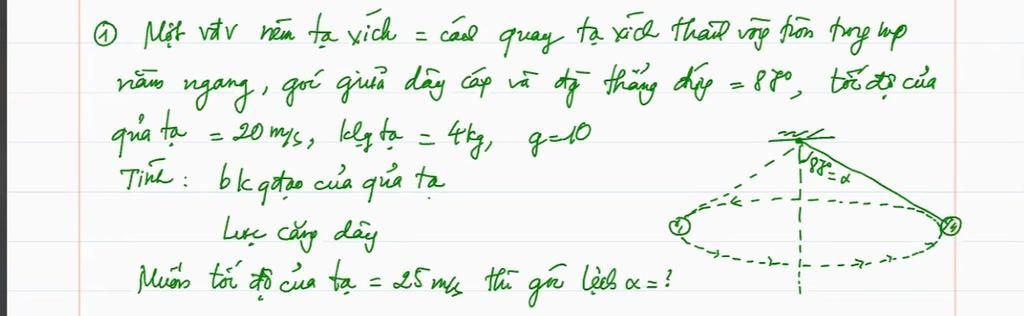 ① Một vđv ném tạ xích = cách quay tạ xích thành vòng tròn trong mp
nằm ngang, góc giữa dây cáp và đg thẳng đứng = 87°, tốc độ của
quả tạ = 20 m/s, klg tạ = 4kg, g=10
Tính: bk qđạo của quả tạ
Lực căng dây
Muốn tốc độ của tạ = 25 m/s thì góc lệch α = ?
87° = α